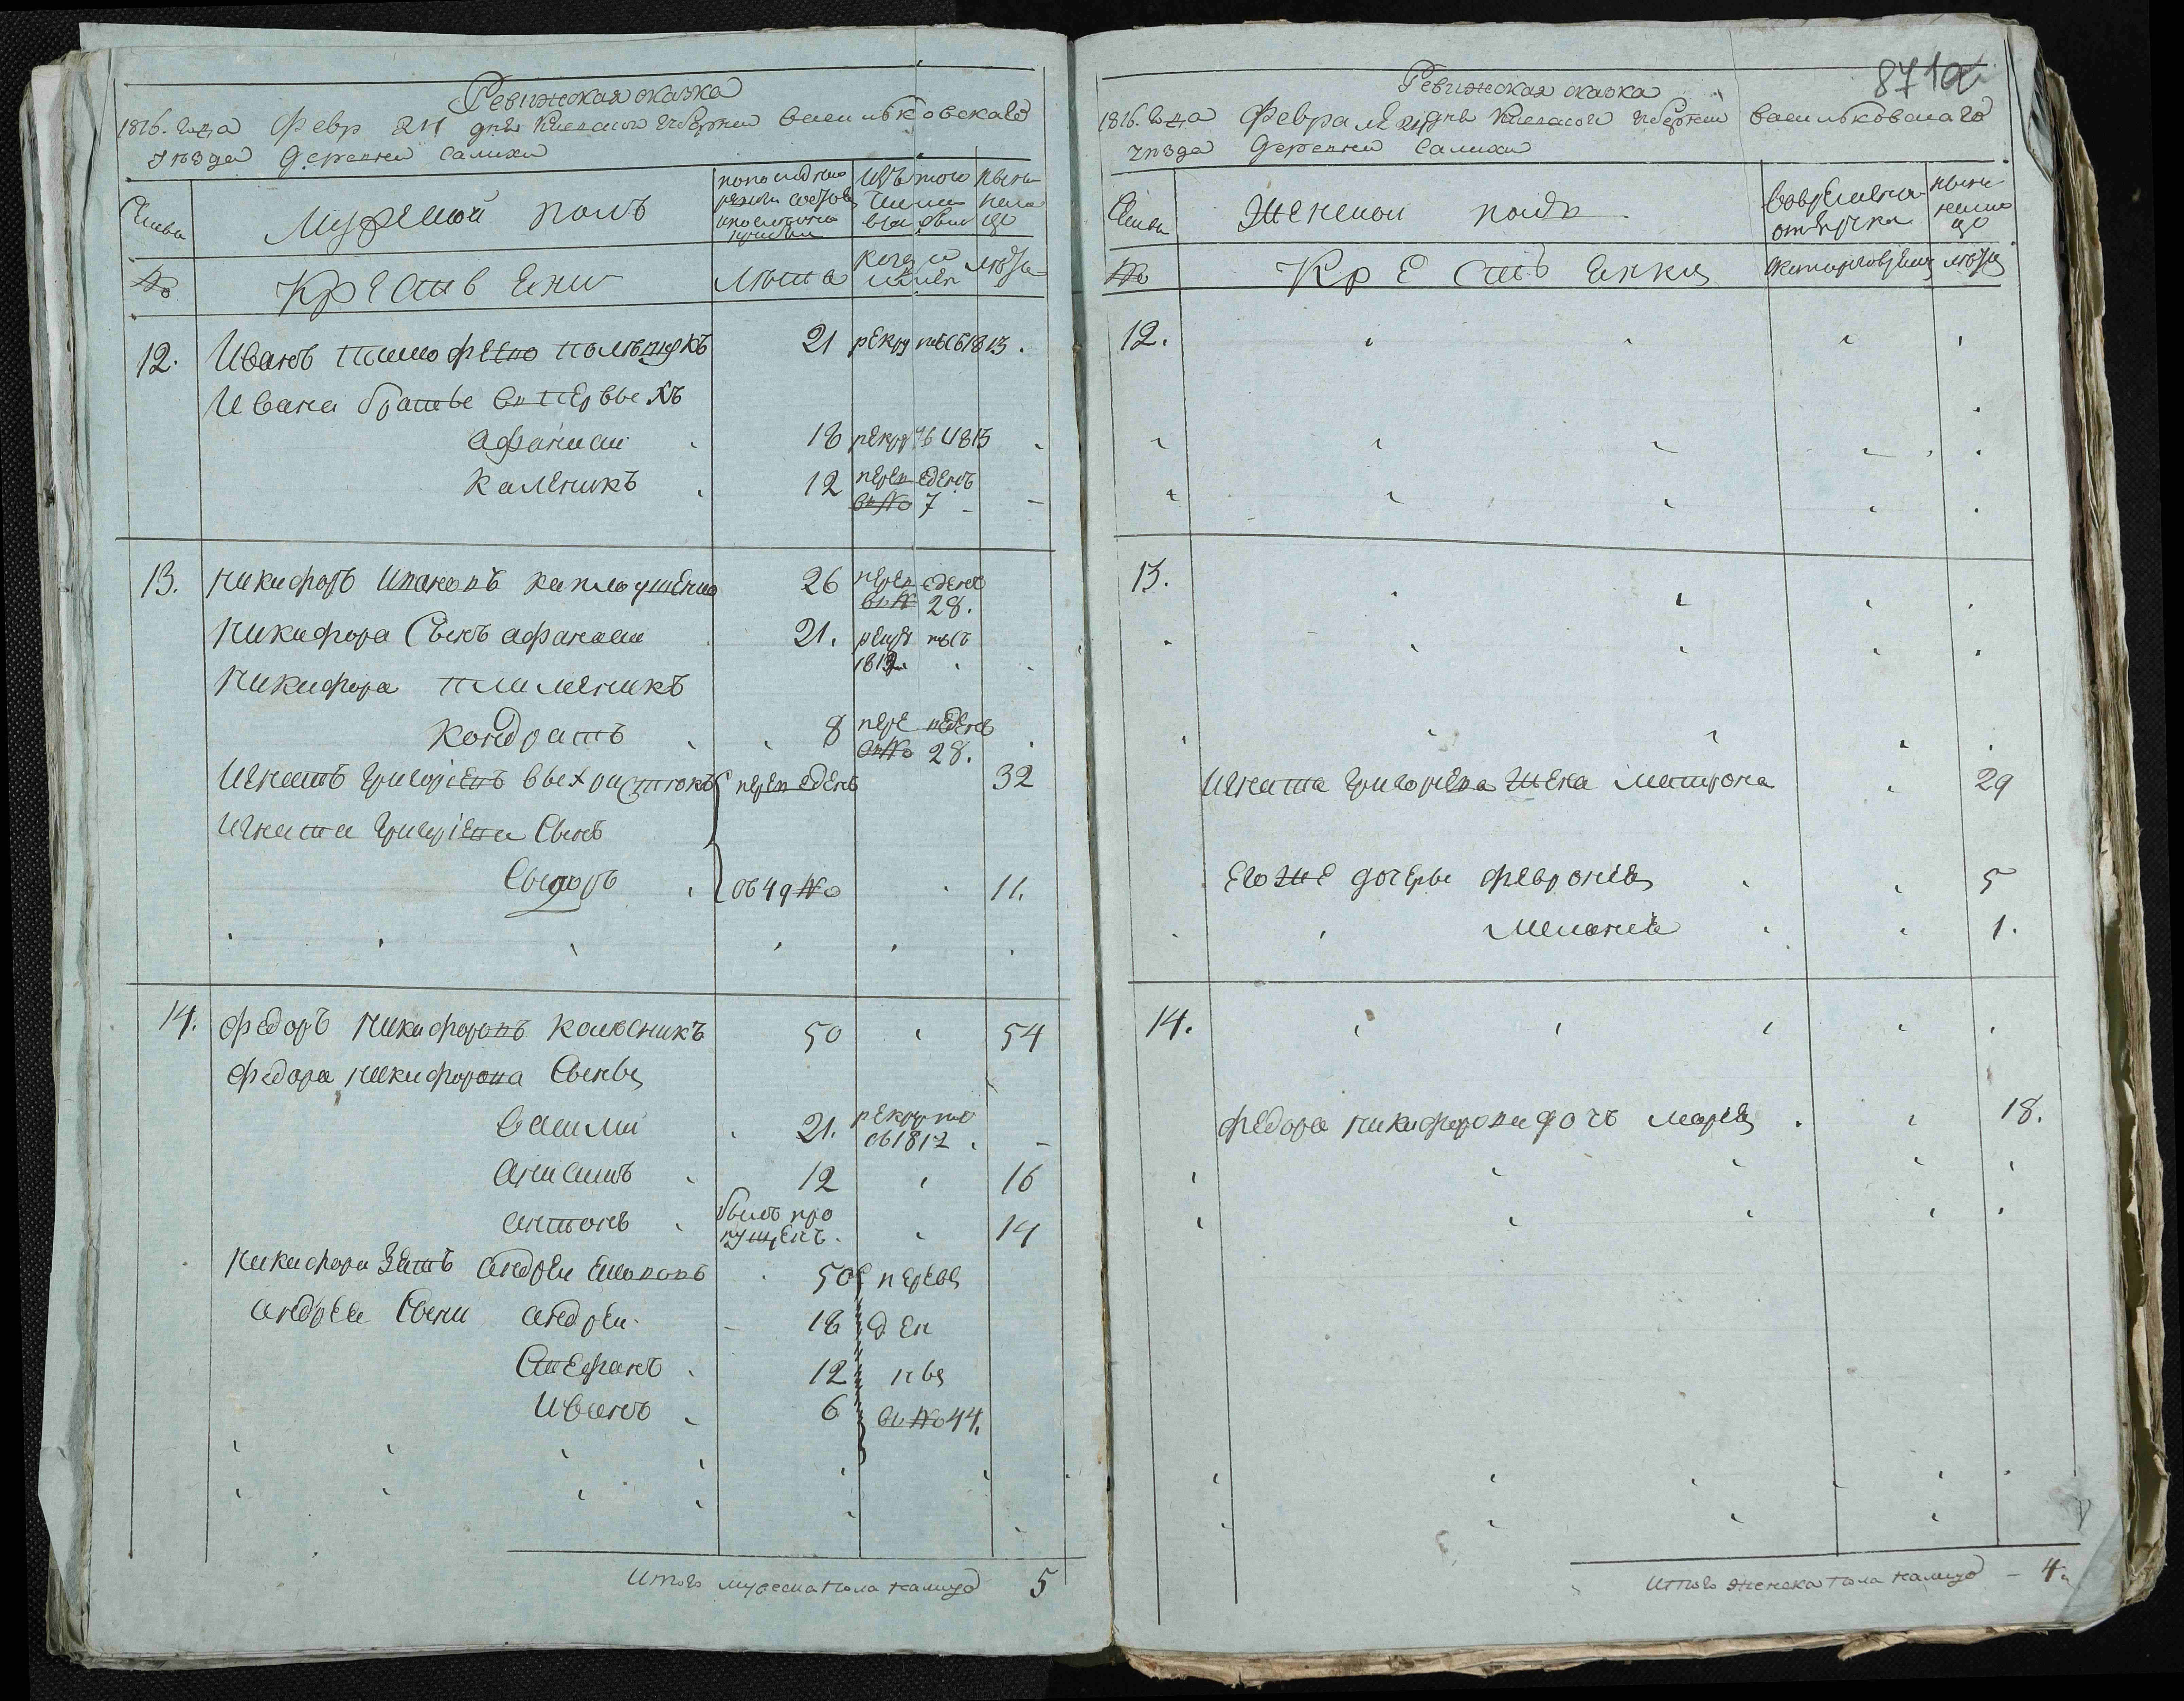 Ревижская сказка
1816. года Февр 24 дня Киевской губернии васильковскаго
уезда Деревни Салихи
Семьи
Мужеской полъ
по последней ревизии состояло
изъ того числа выбыло
ныне на лицо
№
Крестьвени
Лѣта
когда именно
лѣта
12. Иванъ тимофѣево польщукъ 21 рекрутъ съ 1813.
Ивана братье випервыхъ
афанаси 18 рекрутъ 1813
калѣникъ 12 переведенъ
въ № 7
13. никифоръ Ивановъ каплоушѣнко 26 переведенъ
въ № 28.
никифора Сынъ афанаси 21. рекрутъ съ
1812
никифора плименикъ
кондратъ 8 переведенъ
въ № 28.
Игнатъ григорiевъ выхристюкъ переведенъ 32
Игната григорiева Сынъ
Сыдоръ съ 49 № 11.
14. федоръ никифоровъ колѣсникъ 50 54
федора никифорова Сыны
васили 21. рекрутъ
съ 1812
анисимъ 12 16
антонъ былъ про
пущенъ. 14
никифора Зять андреи Симоновъ 50 переве
андрея Сыни андреи 18 ден
Стефанъ 12 ны
Иванъ 6 въ № 44.
Итого мужеска пола налицо 5
871а
Ревижская сказка
1816. года Февраля 24 дня Киевской губернии васильковскаго
уезда Деревни Салихи
Семьи
Женской полъ
во временной отлучке
ныне налицо
№
Крестьвенки
с которого времени
лѣты
12.
13.
Игната григорѣва жена матрона 29
Его же дочеры феврониѣ 5
Меланиѣ 1.
14.
федора никифорова дочъ мариѣ 18.
Итого женска пола налицо – 4.